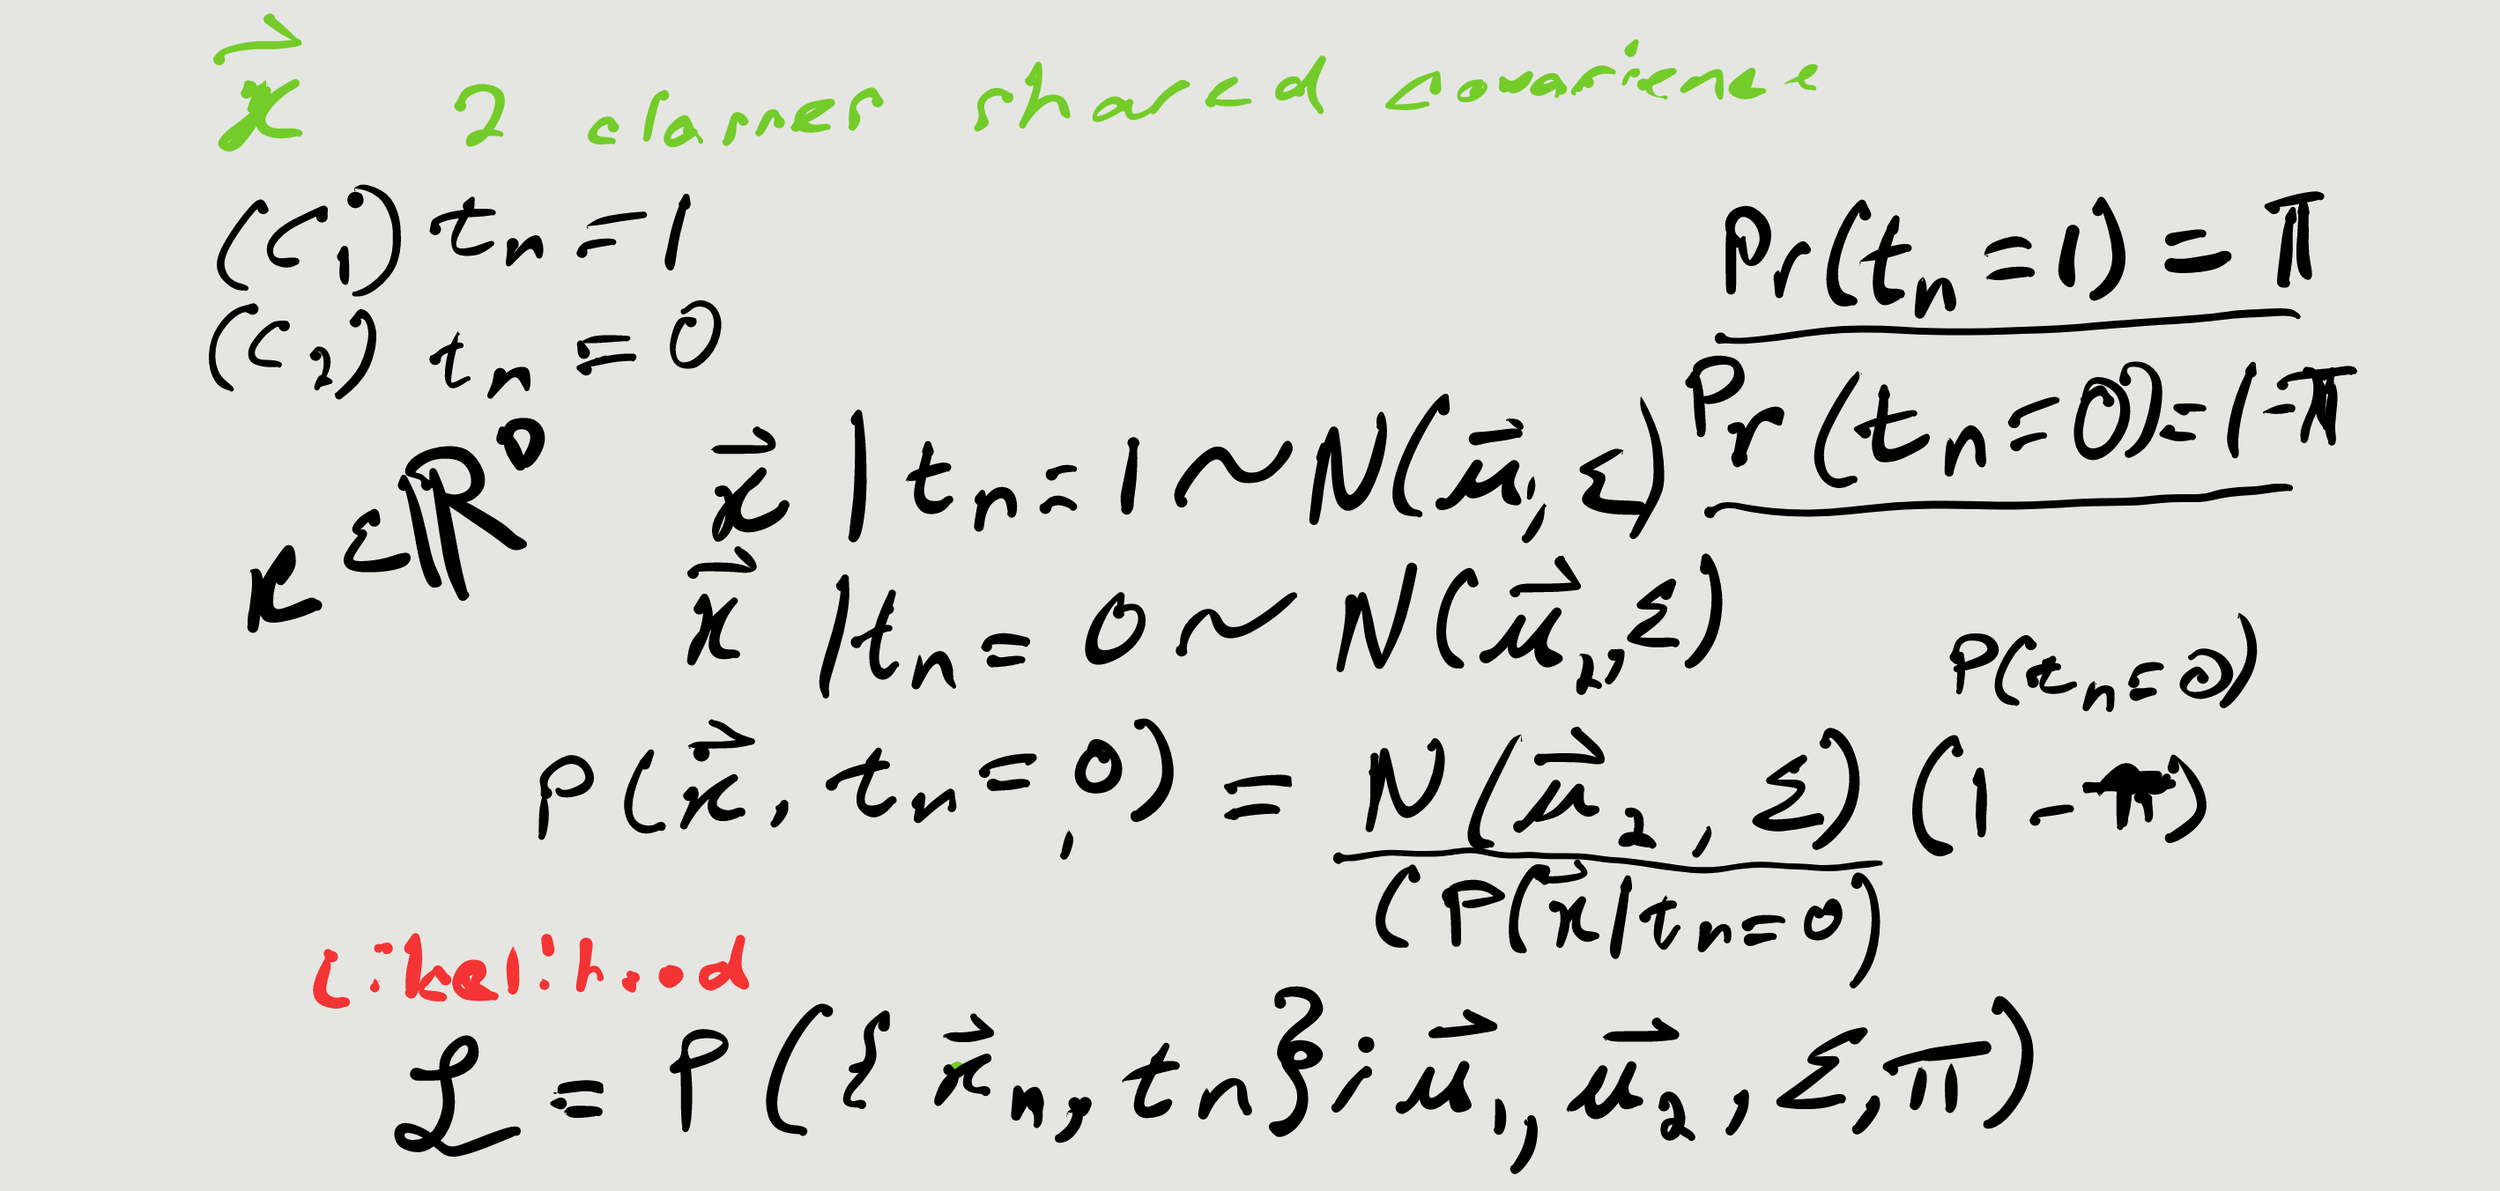 x⃗ 2 classes shared covariance
(C₁) tₙ = 1 Pr(tₙ = 1) = π
(C₂) tₙ = 0 Pr(tₙ = 0) = 1 - π
x ∈ ℝᴰ x⃗ | tₙ = 1 ~ N(μ⃗₁, Σ)
x⃗ | tₙ = 0 ~ N(μ⃗₂, Σ)
P(tₙ = 0)
P(x⃗, tₙ = 0) = N(μ⃗₂, Σ) (1 - π)
(P(x⃗ | tₙ = 0)
Likelihood
ℒ = P({x⃗ₙ, tₙ}; μ⃗₁, μ⃗₂, Σ, π)